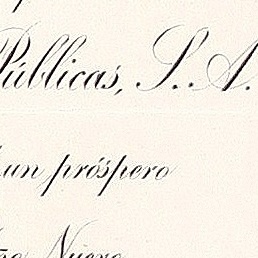 Públicas, S. A.
un próspero
Año Nuevo